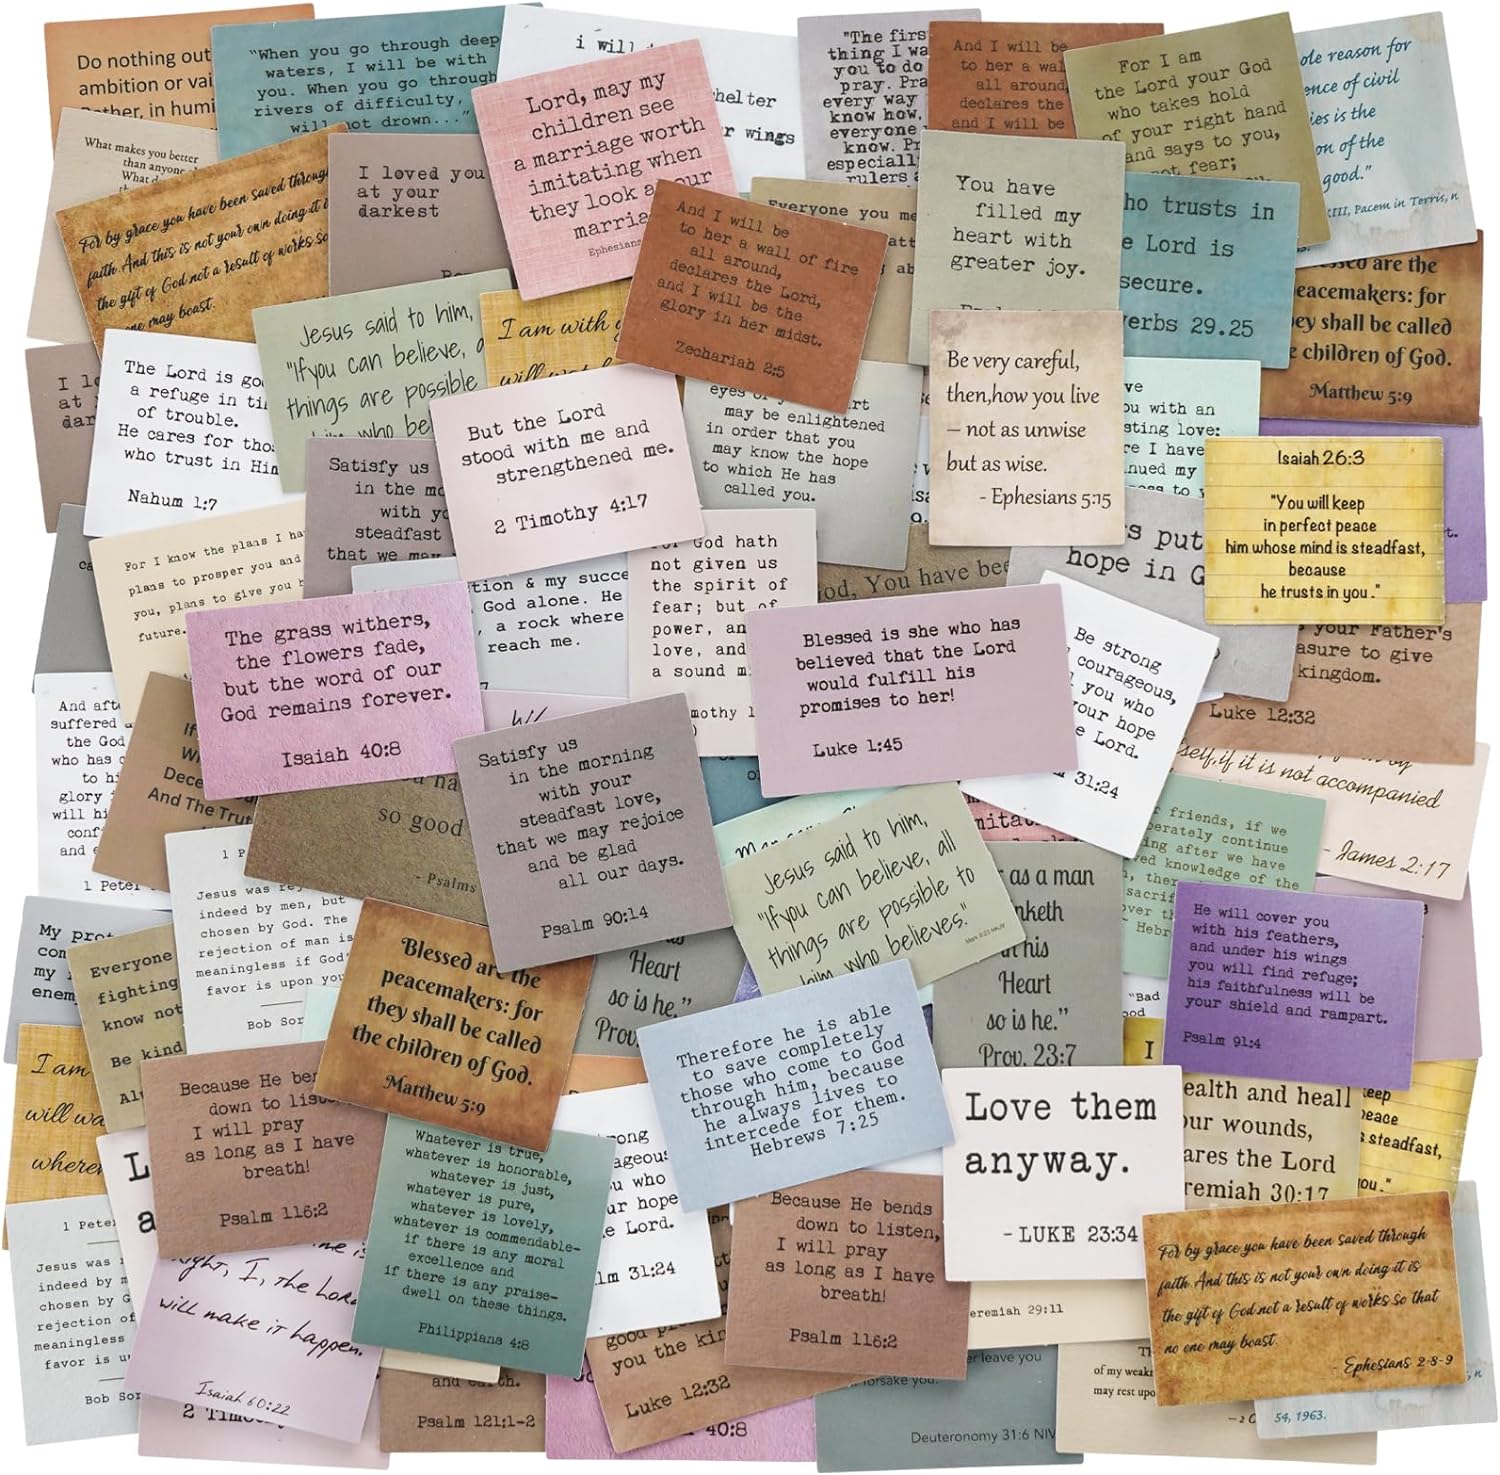 Do nothing out
ambition or vai
Rather, in humi
"When you go through deep
waters, I will be with
you. When you go through
rivers of difficulty,
will not drown..."
i will
shelter
wings
Lord, may my
children see
a marriage worth
imitating when
they look at our
marria
Ephesians
"The firs
thing I wa
you to do
pray. Pra
every way
know how,
everyone
know. Pr
especiall
rulers
And I will be
to her a wal
all around,
declares the
and I will be
For I am
the Lord your God
who takes hold
of your right hand
and says to you,
not fear;
ole reason for
ence of civil
ies is the
on of the
good."
XIII, Pacem in Terris, n
What makes you better
than anyone
What d
For by grace you have been saved throug
faith. And this is not your own doing it i
the gift of God not a result of works so
one may boast.
I loved you
at your
darkest
Everyone you me
And I will be
to her a wall of fire
all around,
declares the Lord,
and I will be the
glory in her midst.
Zechariah 2:5
You have
filled my
heart with
greater joy.
ho trusts in
e Lord is
secure.
verbs 29.25
essed are the
eacemakers: for
hey shall be called
e children of God.
Matthew 5:9
The Lord is goo
a refuge in ti
of trouble.
He cares for tho
who trust in Him
Nahum 1:7
I lo
at
dar
Jesus said to him,
"If you can believe, a
things are possible
him who be
I am with
will wat
But the Lord
stood with me and
strengthened me.
2 Timothy 4:17
eyes
may be enlightened
in order that you
may know the hope
to which He has
called you.
Be very careful,
then,how you live
– not as unwise
but as wise.
- Ephesians 5:15
ve
ou with an
sting love:
re I have
nued my
ness to y
Isaiah 26:3
"You will keep
in perfect peace
him whose mind is steadfast,
because
he trusts in you ."
Satisfy us
in the mo
with yo
steadfast
that we may
For I know the plans I ha
plans to prosper you and
you, plans to give you h
future.
tion & my succe
God alone. He
, a rock where
reach me.
For God hath
not given us
the spirit of
fear; but of
power, an
love, and
a sound m
mothy 1
God, You have bee
s put
hope in G
The grass withers,
the flowers fade,
but the word of our
God remains forever.
Isaiah 40:8
Blessed is she who has
believed that the Lord
would fulfill his
promises to her!
Luke 1:45
Be strong
courageous,
l you who
your hope
e Lord.
m 31:24
your Father's
asure to give
kingdom.
Luke 12:32
And afte
suffered a
the God
who has c
to hi
glory i
will his
conf
and e
1 Peter
If
W
Dece
And The Trut
so good
- Psalms
Satisfy us
in the morning
with your
steadfast love,
that we may rejoice
and be glad
all our days.
Psalm 90:14
Jesus said to him,
"If you can believe, all
things are possible to
him who believes."
Mark 9:23 NKJV
self, if it is not accompanied
- James 2:17
friends, if we
berately continue
ing after we have
ved knowledge of the
, ther
sacrif
over th
- Hebr
1 P
Jesus was rej
indeed by men, but
chosen by God. The
rejection of man is
meaningless if God'
favor is upon you
Bob Sor
My prot
com
my
enem
Everyone
fighting
know not
Be kind
Al
Blessed are the
peacemakers: for
they shall be called
the children of God.
Matthew 5:9
Heart
so is he."
Prov.
as a man
nketh
in his
Heart
so is he."
Prov. 23:7
"Bad
ood
He will cover you
with his feathers,
and under his wings
you will find refuge;
his faithfulness will be
your shield and rampart.
Psalm 91:4
I am
will wa
where
Because He ben
down to liste
I will pray
as long as I have
breath!
Psalm 116:2
Therefore he is able
to save completely
those who come to God
through him, because
he always lives to
intercede for them.
Hebrews 7:25
Love them
anyway.
-LUKE 23:34
I
ealth and heal
our wounds,
ares the Lord
remiah 30:17
keep
peace
s steadfast,
you."
L
a
Whatever is true,
whatever is honorable,
whatever is just,
whatever is pure,
whatever is lovely,
whatever is commendable-
if there is any moral
excellence and
if there is any praise-
dwell on these things.
Philippians 4:8
rong
ageous,
u who
ur hope
e Lord.
lm 31:24
Because He bends
down to listen,
I will pray
as long as I have
breath!
Psalm 116:2
For by grace you have been saved through
faith. And this is not your own doing it is
the gift of God not a result of works so that
no one may boast.
- Ephesians 2-8-9
1 Peter
Jesus was
indeed by m
chosen by G
rejection of
meaningless
favor is u
Bob Sor
right, I, the Lord
will make it happen.
Isaiah 60:22
2 Timothy
and earth.
Psalm 121:1-2
good
you the kin
Luke 12:32
40:8
eremiah 29:11
er leave you
forsake you.
Deuteronomy 31:6 NIV
of my weak
may rest upo
54, 1963.